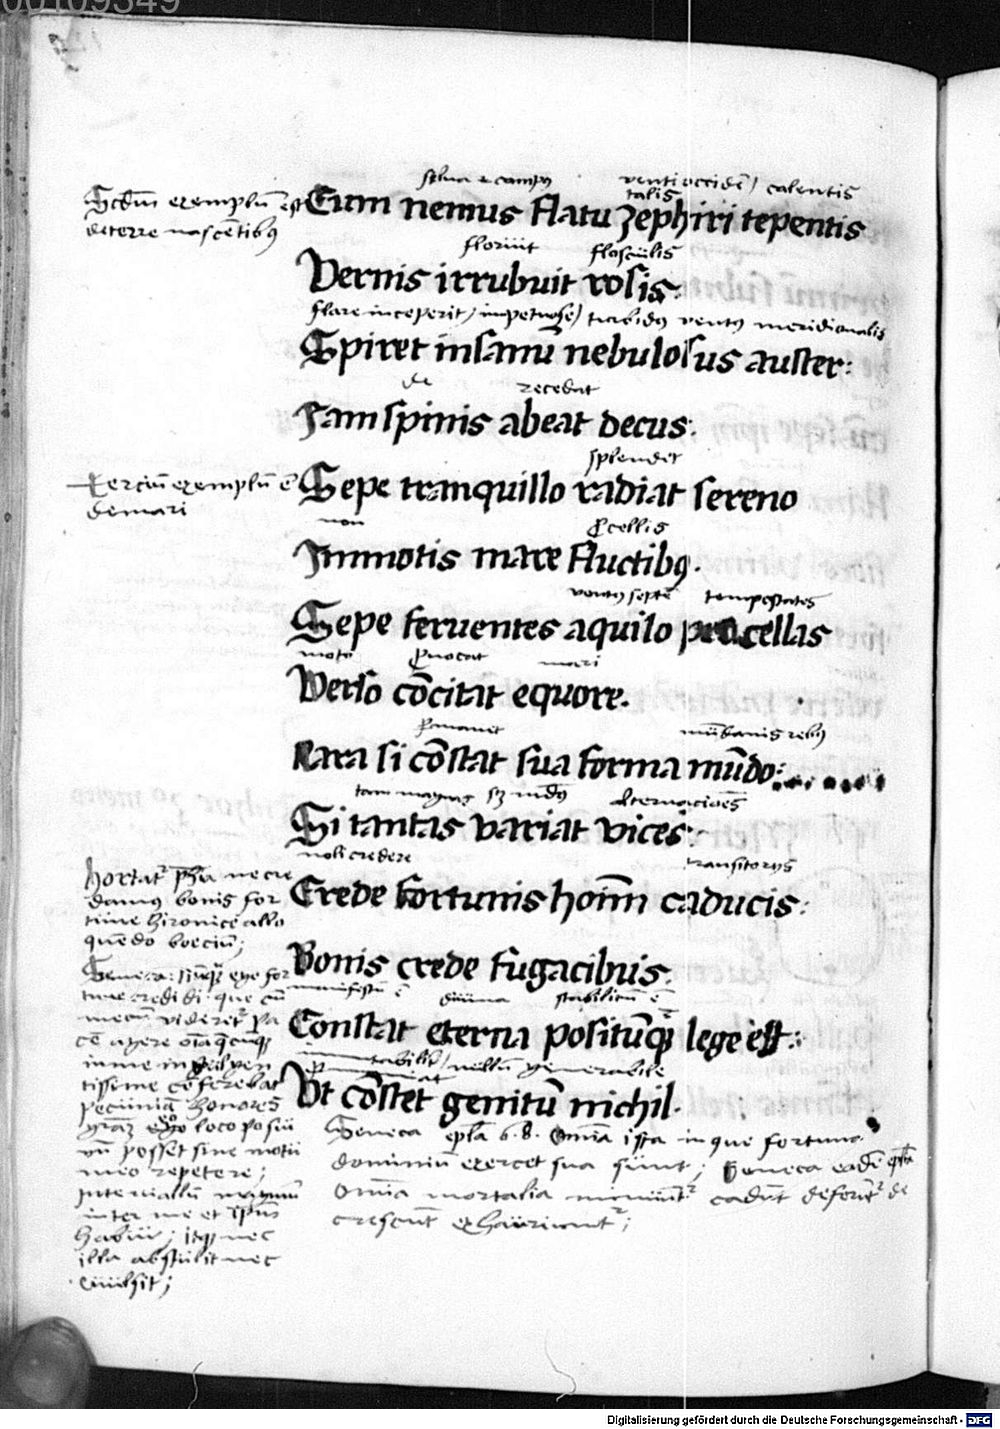 00109349
silua et campus venti occidentalis calentis
Scdm exemplu est
de terre nascetibus
Cum nemus flatu zephiri tepentis
floruit flosculis
Vernis irrubuit rosis:
flare inceperit / impetuose / turbidus ventus meridionalis
Spiret insanu nebulosus auster:
de recedat
Jam spinis abeat decus:
splendet
Terciu exemplu e
de mari
Sepe tranquillo radiat sereno
non procellis
Jnmotis mare fluctibus.
ventus septe tempestates
Sepe feruentes aquilo procellas
moto prouocat mari
Verso cocitat equore.
permanet mudanis rebus
Rara si costat sua forma mudo:
tam magnas sz mudus alternacioes
Si tantas variat vices:
noli credere transitoriis
Crede fortunis hoim caducis:
Bonis crede fugacibus.
manifestu e diuina stabilitu e
Constat eterna posituque lege est:
nullu generabile
Vt costet genitu nichil.
hortatur phia ne cre
damus bonis for
tune hironice allo
quedo boeciu;
Seneca: ego for
tune credidi que cu
mecu videretur pa
ce agere oia
in me indulgen
tissime coferebat
pecunia honores
graz eo loco posui
vn posset sine motu
meo repetere;
Interuallu magnum
inter me et ipsum
habui; itaque nec
illa abstulit nec
euulsit;
Seneca epla 6.8. Omnia ista in que fortuna
dominiu exercet sua sunt; Seneca eade epla
Omnia mortalia minuuntur cadut deferutur de
crescut exhauriuntur;
Digitalisierung gefördert durch die Deutsche Forschungsgemeinschaft - DFG